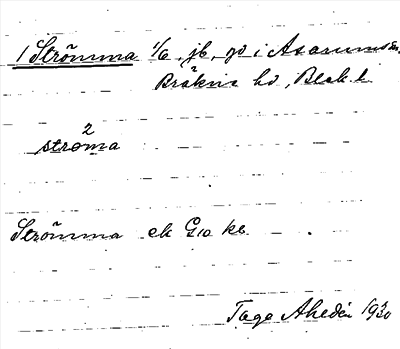 1 Strömma 1/6, jb, gd i Asarums sn,
Bräkne hd, Blek. l.
2
stroma
Strömma ek G10 ke
Tage Ahedén 1930